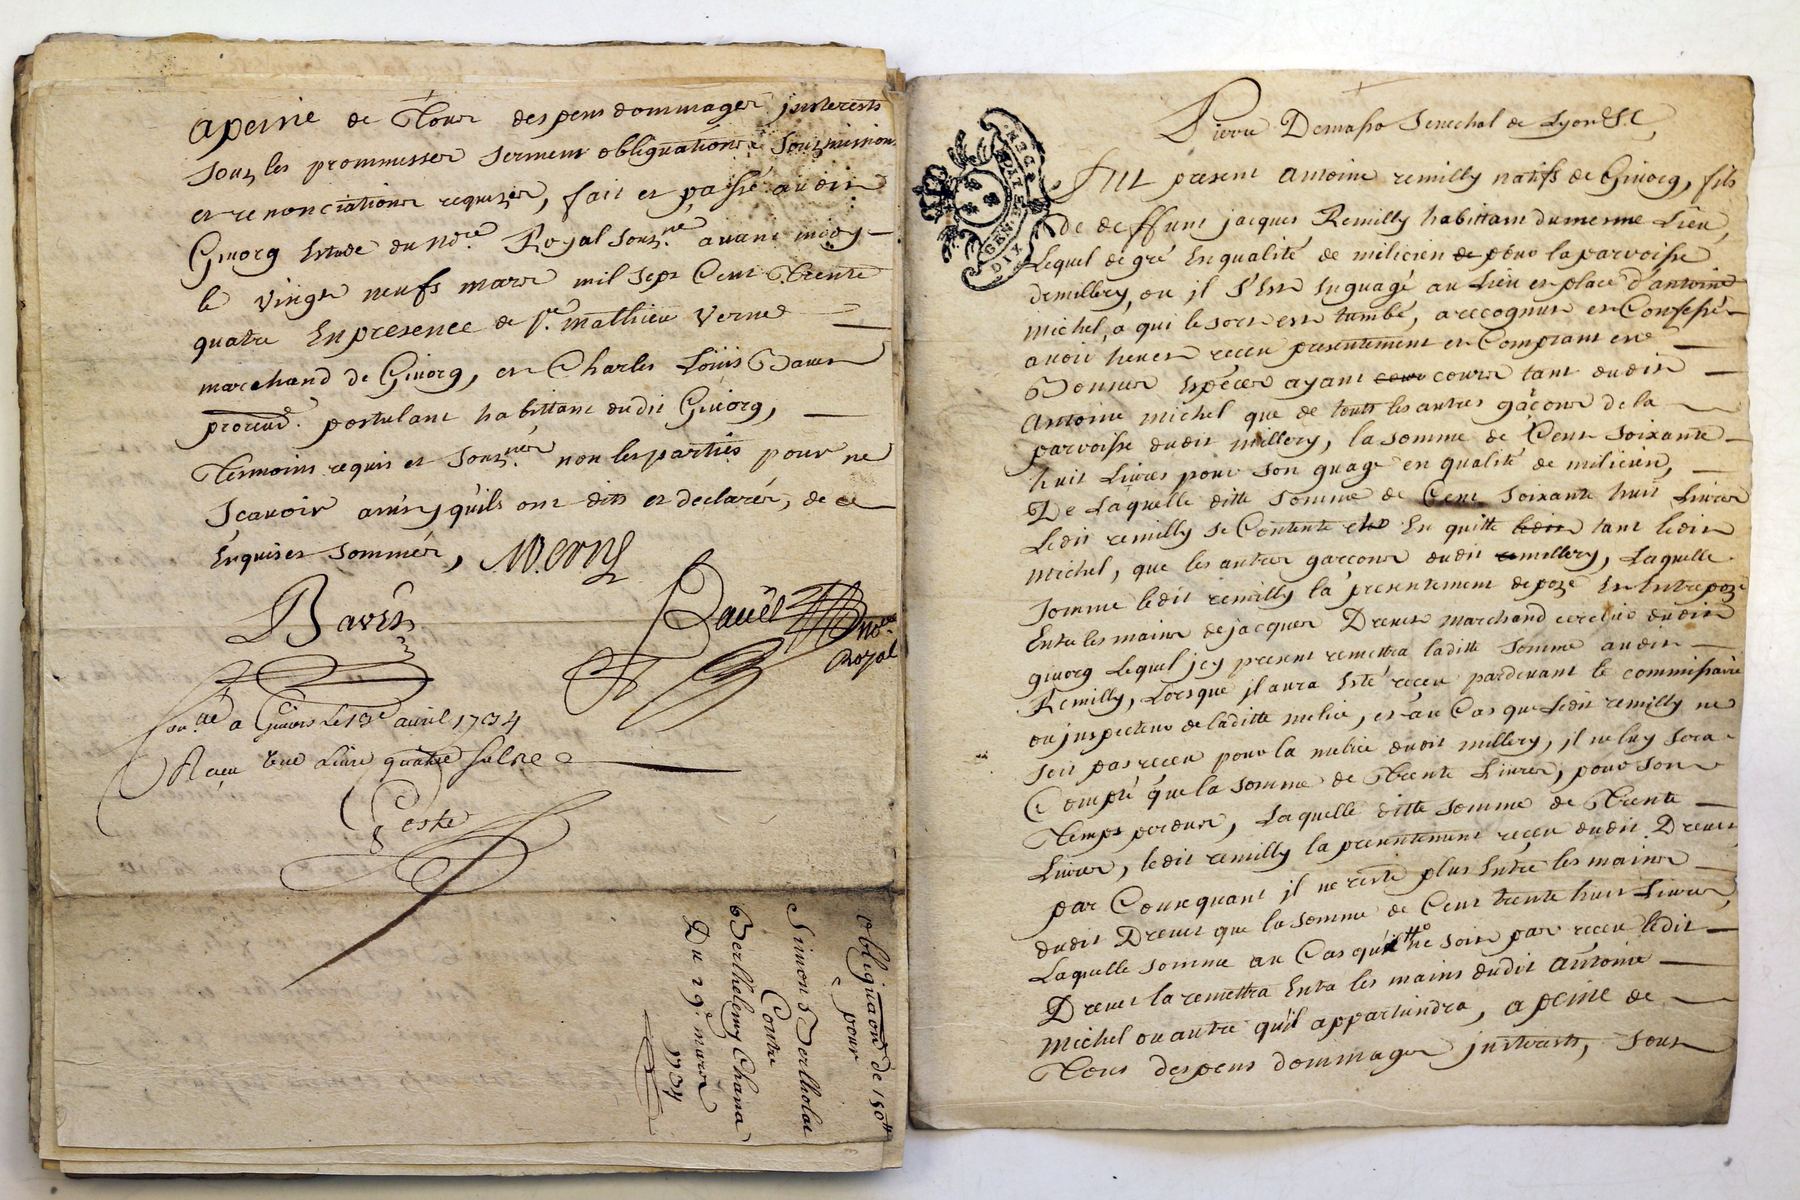 apeine de Tous despens dommages jnterests
sous les prommesses serment obligations soumissions
et renonciations requises, fait et passé audit
Givorg Estude du No.re Royal sous.né avant midy
le vingt neufs mars mil sept Cent Trente
quatre En presence de s.r mathieu verne
marchand de Givorg, et Charles Loüis Bavet
procur. postulant habittant dudit Givorg,
Tesmoins requis et sous.nés non les parties pour ne
scavoir ainsy qu'ils ont dits et declarés, de ce
Enquis et sommés, M. Verne
Bavet
Bavet no.re
Royal
Con.llé a Givors le 13e avril 1734
Reçu une Livre quatre sols
Teste
Obliguaon de 150tt
pour
Simon Berthollat
Contre
Berthelemy Chana
Du 29e mars
1734
Pierre Demasso Senechal de Lyon &.C,
GEN. DE LYON
DIX
Fut present antoine remilly natifs de Givorg, fils
de deffunt jacques Remilly habittant dumesme Lieu,
Lequel de gré En qualité de milicien de pour la parroisse
demillery, ou jl s'Est Enguagé au Lieu et place d'antoine
michel, a qui le sort est tumbé, a recognus et Confessé
avoir heu et receu presentement et Comptant en
Bonnes Espèces ayant cour cours tant dudit
antoine michel que de touts les autres garçons de la
parroisse dudit millery, la somme de Cent soixante
huit Livres pour son guage en qualité de milicien,
De Laquelle ditte somme de Cent soixante huit Livres
Ledit remilly se Contente et En quitte ledit tant ledit
michel, que les autres garçons dudit remillery, Laquelle
somme ledit remilly la presentement depozé En Entrepoz
Entre les mains de jacques Drevet marchand dudit
givorg Lequel jcy present remettra laditte somme audit
Remilly, Lorsque jl aura Esté receu pardevant le commissaire
ou jnspecteur de laditte milice, et au Cas que Ledit remilly ne
soit pas receu pour la milice dudit millery, jl ne luy sera
Compté que la somme de Trente Livres, pour son
Temps perdus, Laquelle ditte somme de Trente
Livres, ledit remilly la presentement receu dudit Drevet
par Consequant jl ne reste plus Entre les mains
dudit Drevet que la somme de Cent trente huit Livres,
Laquelle somme au Cas qu'il ne soit pas receu ledit
Drevet la remettra Entre les mains dudit antoine
michel ou autre qu'il appartiendra, a peine de
Tous despens dommages jnterests, sous